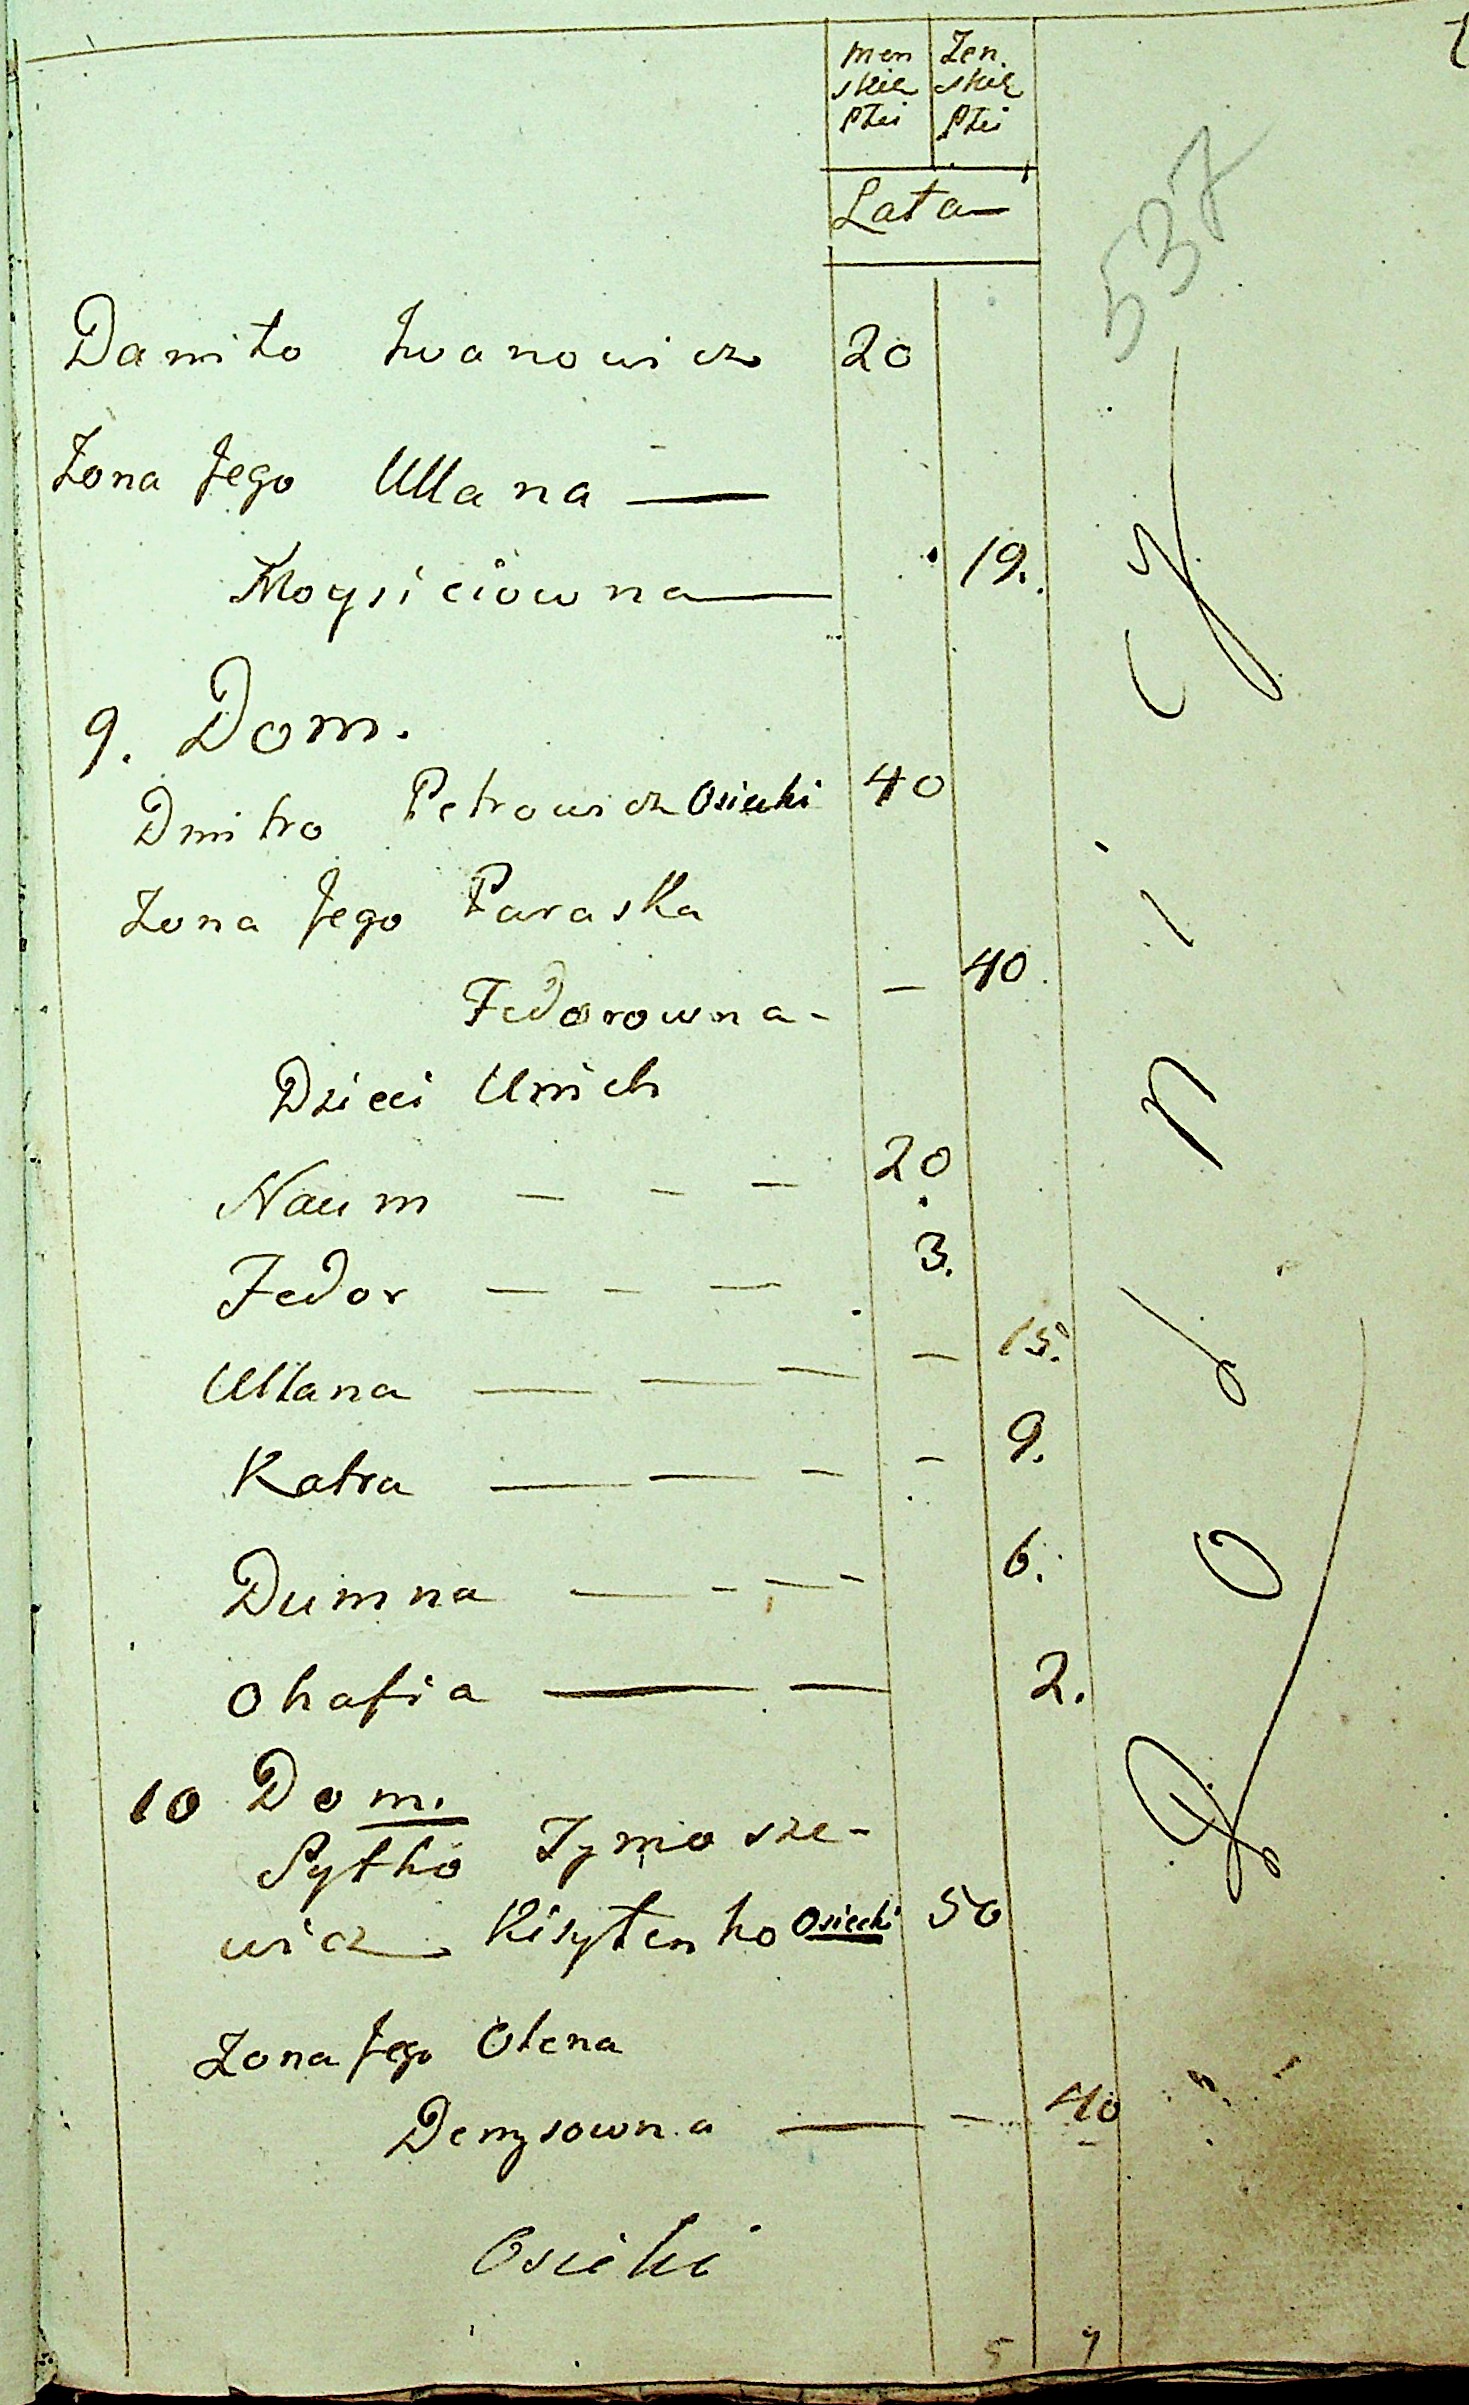 men Zen.
skiey skiey
Płci Płci
Lata
537
Daniło Iwanowicz 20
Zona Jego Ullana
Moysieiowna 19.
9. Dom.
Dmitro Petrowicz Osiecki 40
Zona Jego Paraska
Fedorowna - 40
Dzieci Unich
Naum 20
Fedor 3.
Ullana 15.
Katra 9.
Dumna 6.
Ohafia 2.
10 Dom.
Pytko Tymosze-
wicz Kisylenko Osiecki 50
Zona Jego Olena
Denysowna 40
Osieki
5 7